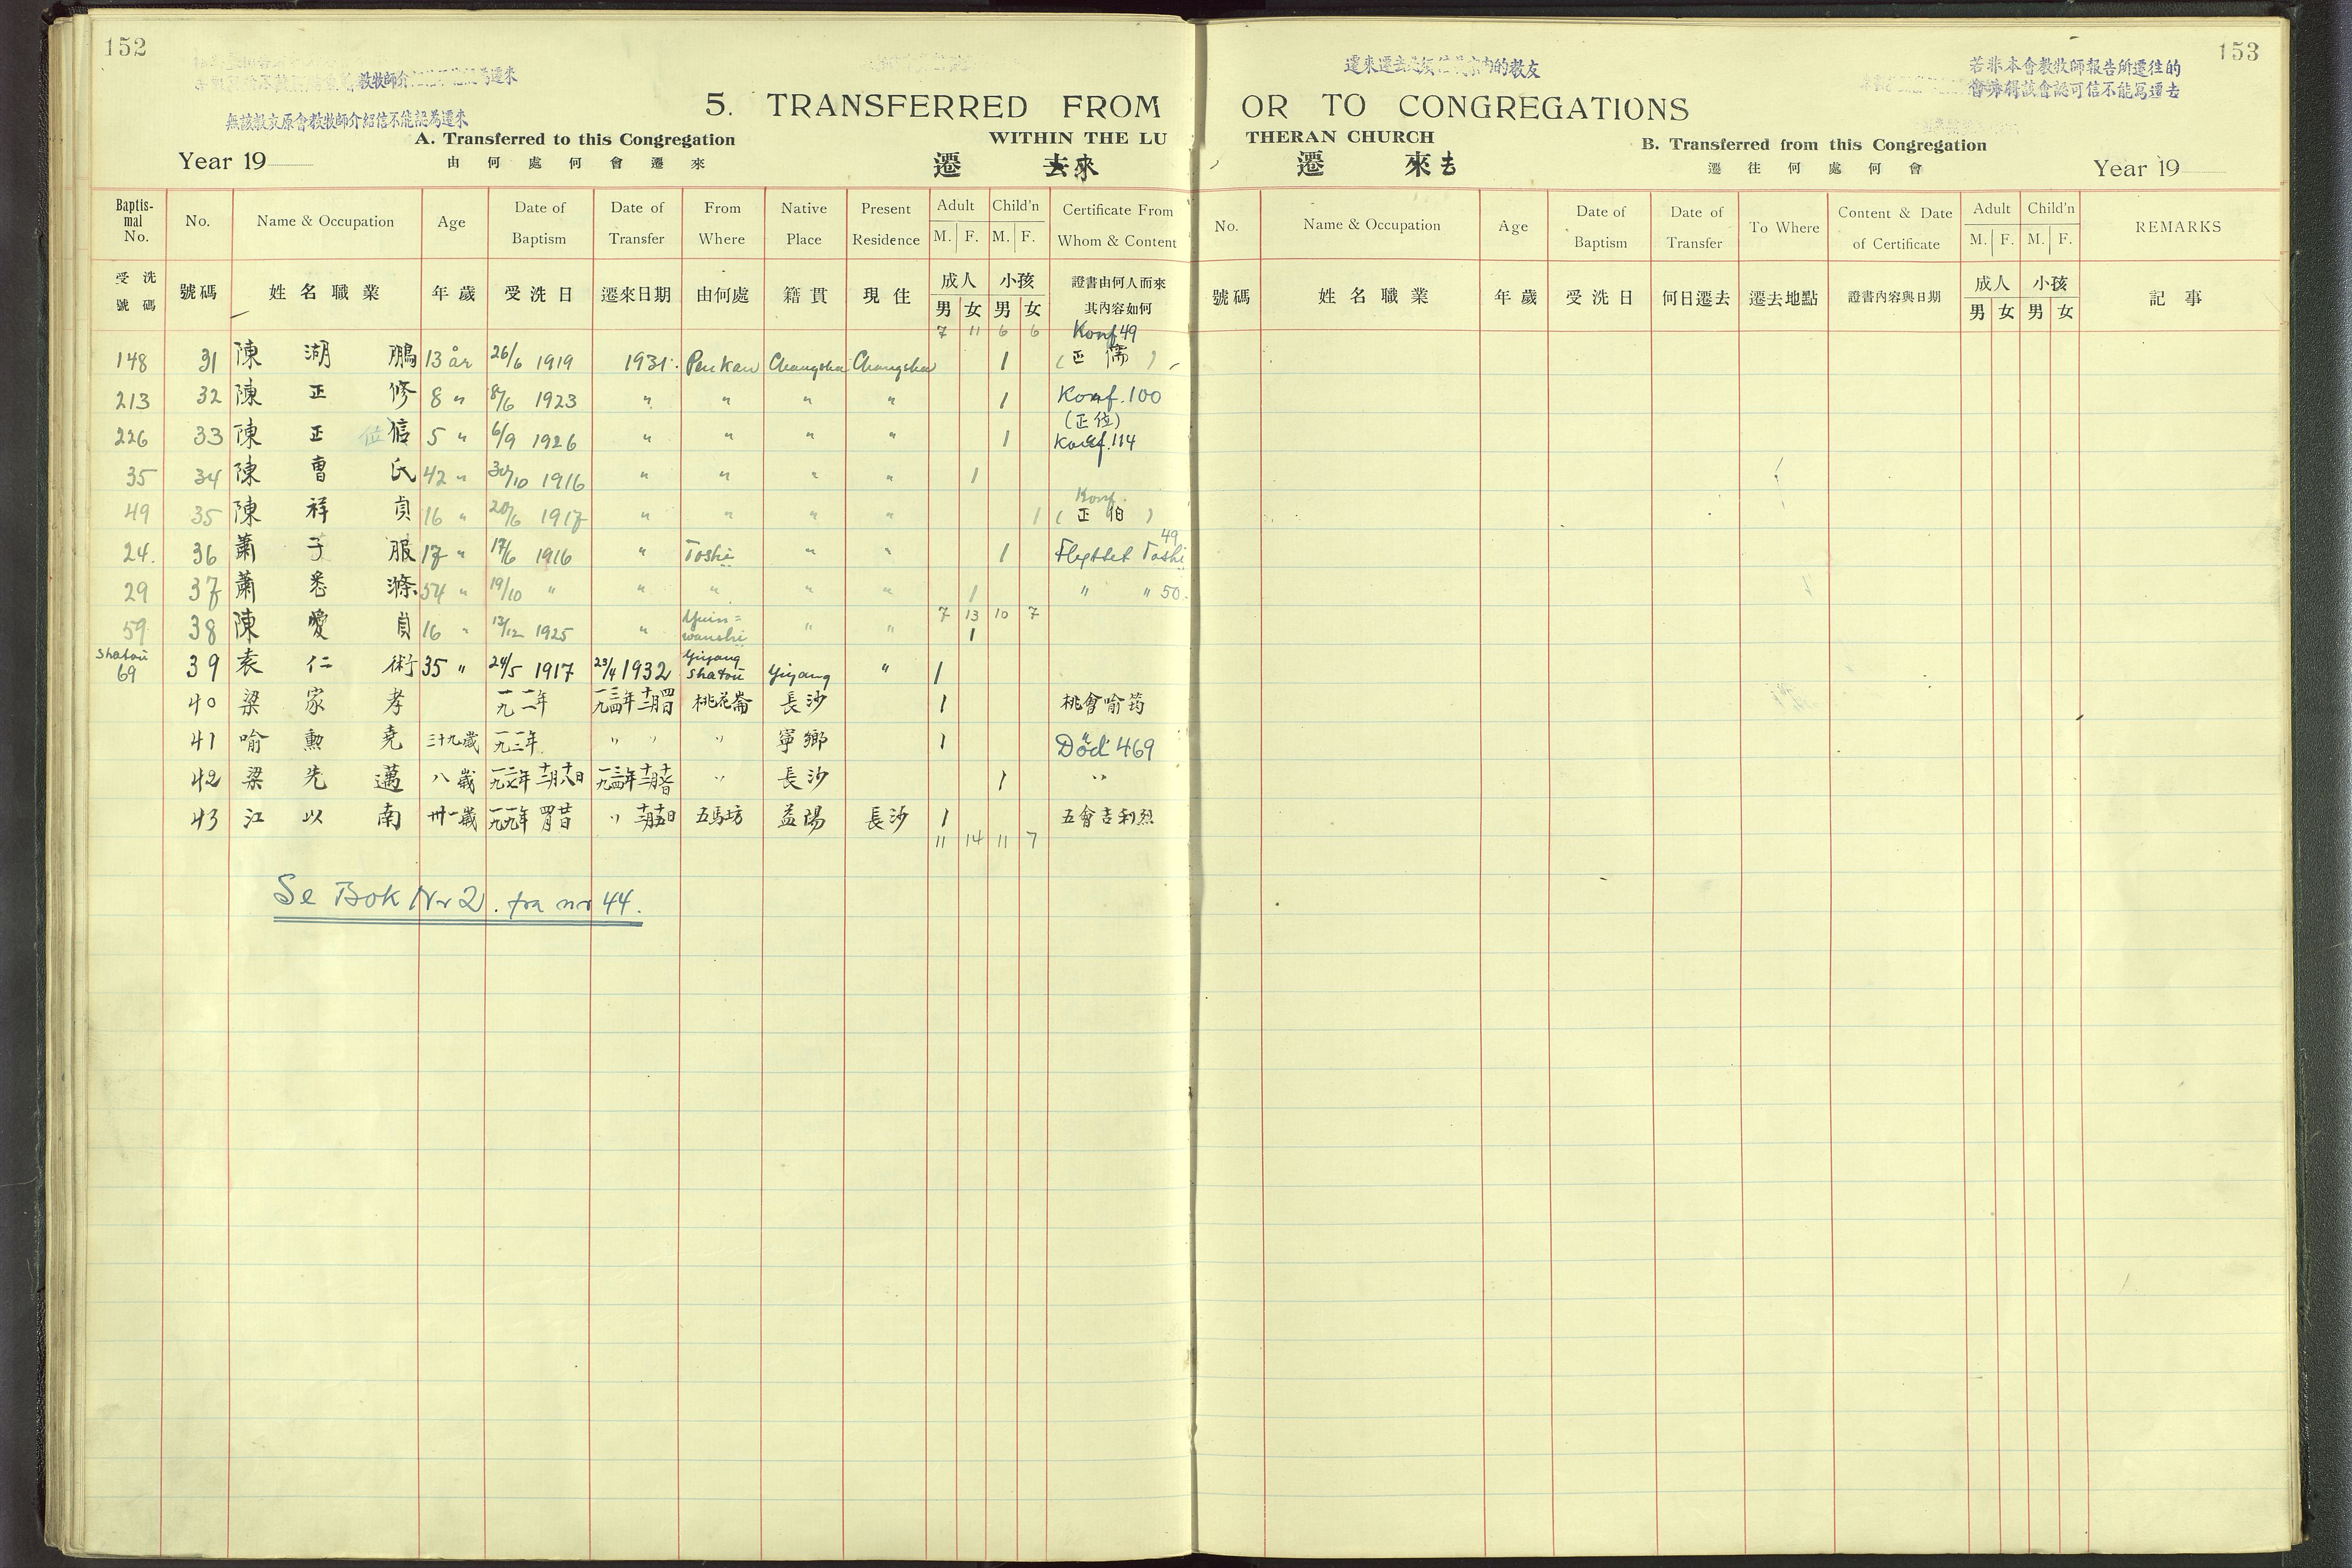 152
153
教牧師介
為遷來
無該教友原會教牧師介紹信不能認為遷來
的教友
若非本會教牧師報告所遷往的
該會認可信不能寫遷去
5. TRANSFERRED FROM OR TO CONGREGATIONS
A. Transferred to this Congregation
WITHIN THE LUTHERAN CHURCH
B. Transferred from this Congregation
Year 19
由何處何會遷來
遷 去來
遷 來去
遷往何處何會
Year 19
Baptismal No. No. Name & Occupation Age Date of Baptism Date of Transfer From Where Native Place Present Residence Adult M. F. Child'n M. F. Certificate From Whom & Content
No. Name & Occupation Age Date of Baptism Date of Transfer To Where Content & Date of Certificate Adult M. F. Child'n M. F. REMARKS
受洗號碼 號碼 姓名職業 年歲 受洗日 遷來日期 由何處 籍貫 現住 成人 男 女 小孩 男 女 證書由何人而來其內容如何
號碼 姓名職業 年歲 受洗日 何日遷去 遷去地點 證書內容與日期 成人 男 女 小孩 男 女 記事
7 11 6 6 Konf 49
148 31 陳湖鵬 13 år 26/6 1919 1931. Pen kan Changsha Changsha 1 (正儒)
213 32 陳正修 8 " 8/6 1923 " " " " 1 Konf. 100
(正位)
226 33 陳正信 位 5 " 6/9 1926 " " " " 1 Konf. 114
35 34 陳曹氏 42 " 30/10 1916 " " " " 1
Konf.
49 35 陳祥貞 16 " 20/6 1917 " " " " 1 (正伯)
49
24. 36 蕭子服 17 " 17/6 1916 " Toshi " " 1 Flyttet Toshi
29 37 蕭悉滌 54 " 19/10 " " " " " 1 " " 50.
7 13 10 7
59 38 陳愛貞 16 " 13/12 1925 " " " 1
Shatou 69 39 袁仁術 35 " 24/5 1917 23/4 1932 Yiyang Shatou Yiyang " 1
40 梁家孝 一九一一年 一九三四年十二月四日 桃花崙 長沙 1 桃會喻筠
41 喻勳堯 三十九歲 一九一三年 " " " 寧鄉 1 "
Död 469
42 梁先邁 八歲 一九二七年十二月十八日 " 長沙 1 "
43 江以南 卅一歲 一九一九年四月廿日 " 十二月十五日 五馬坊 益陽 長沙 1 五會吉利烈
11 14 11 7
Se Bok Nr 2. fra nr 44.